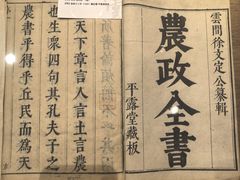 雲間徐文定公纂輯
農政全書
平露堂藏板
天下章言人言土言農
也生衆四句其孔夫子之
農書乎得乎丘民而為天